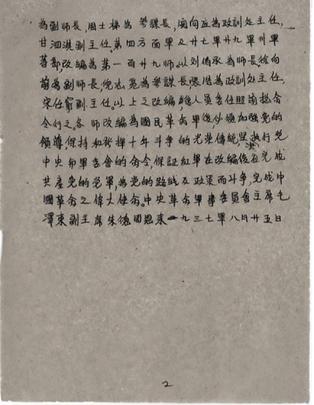 為副師長,周士梯為參謀長,関向应為政訓処主任,
甘泗淇副主任.第四方面軍及廿七軍廿九軍卅軍
等部改編為第一百廿九师以刘伯承為師長徐向
前為副師長,倪志亮為參謀長張浩為政訓処主任,
宋任窮副主任,以上之改編人員委任照前総命
令行之各师改編為國民革命軍後必須加強党的
領導保持和發揮十年斗争的光荣傳統坚决执行党
中央与軍委会的命令,保証紅軍在改編後成
共產党的党軍為党的路線及政策而斗争,完成中
國革命之偉大使命。中央革命軍事委員會主席毛
澤東副主席朱德周恩來一九三七年八月廿五日
2